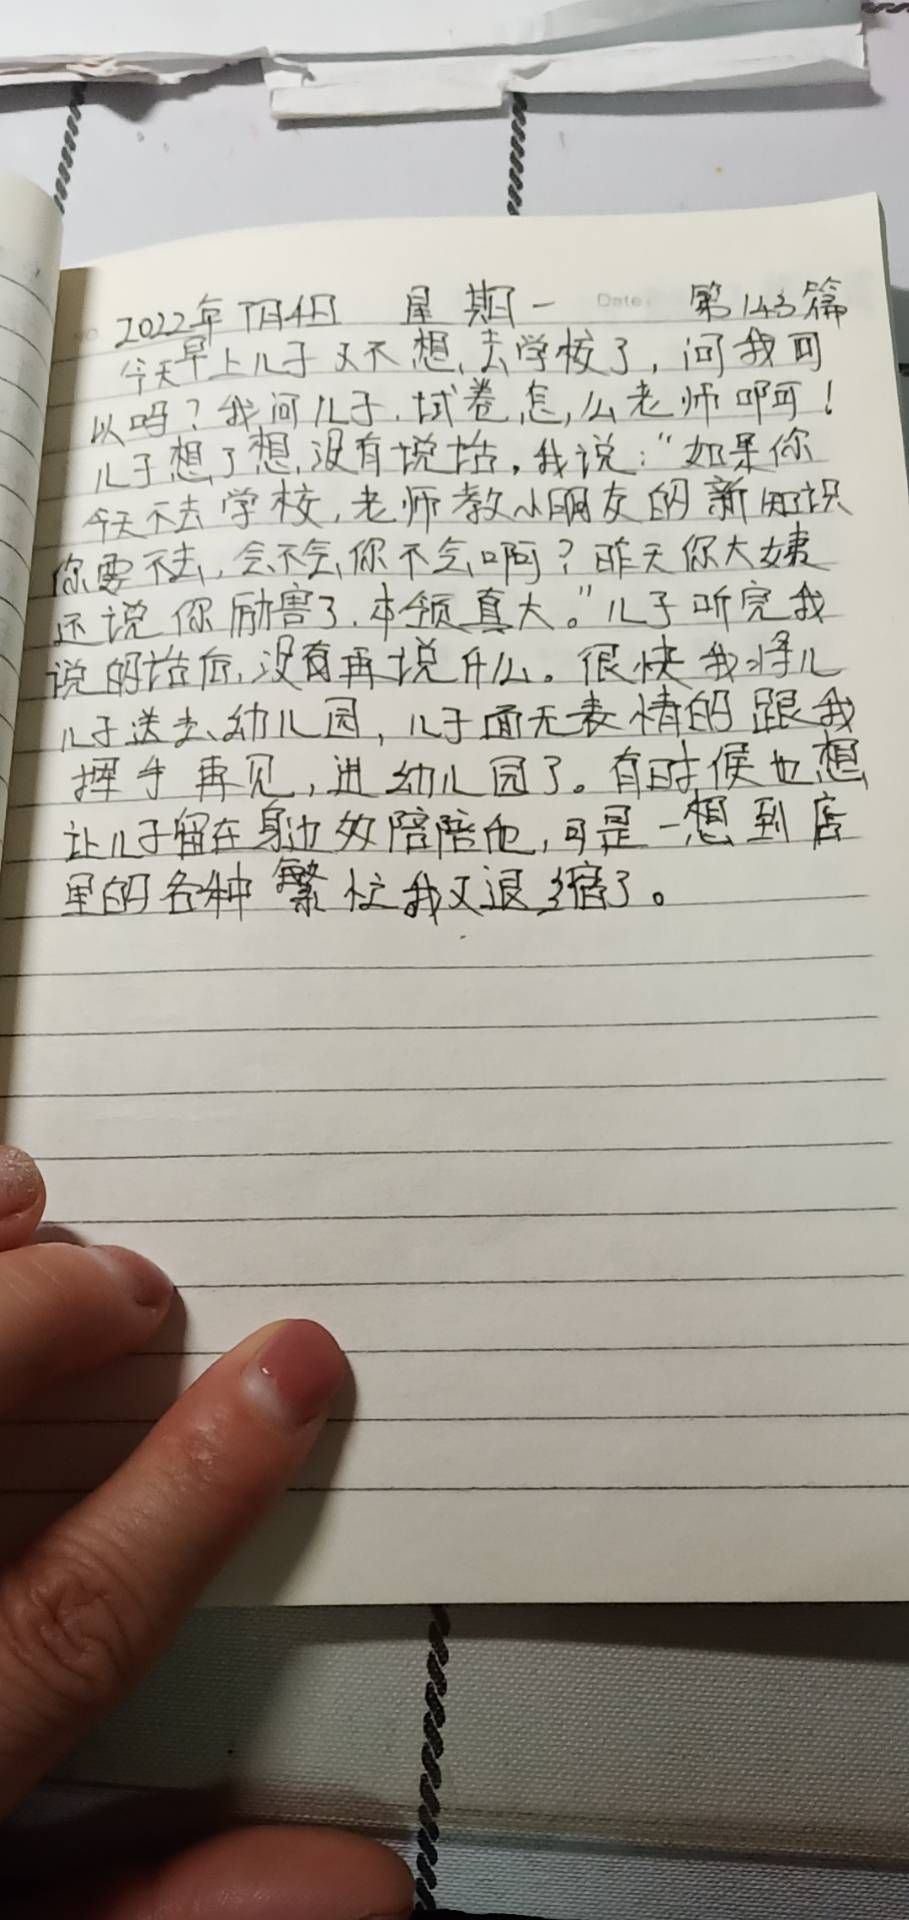 2022年7月4日 星期一 Date: 第143篇
今天早上儿子又不想去学校了,问我可
以吗?我问儿子.试卷怎么老师啊!
儿子想了想,没有说话,我说:“如果你
今天不去学校,老师教小朋友的新知识
你要不去,会不会你不会啊?昨天你大姨
还说你励害了.本领真大。”儿子听完我
说的话后,没有再说什么。很快我将儿
儿子送去幼儿园,儿子面无表情的跟我
挥手再见,进幼儿园了。有时候也想
让儿子留在身边好陪陪他,可是一想到店
里的各种繁忙我又退缩了。